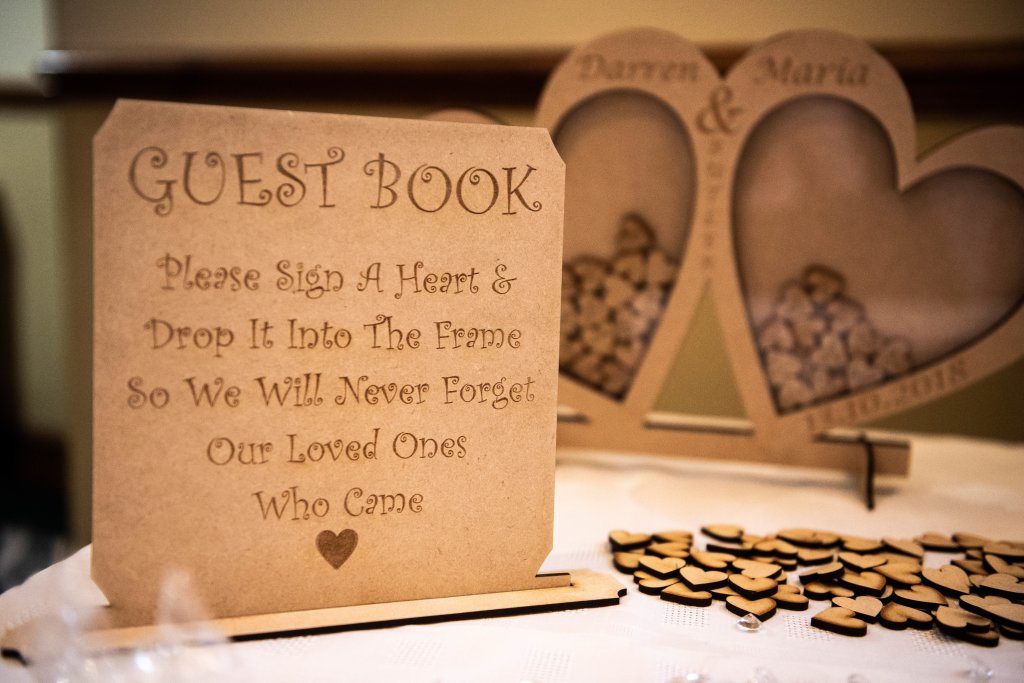 GUEST BOOK
Please Sign A Heart &
Drop It Into The Frame
So We Will Never Forget
Our Loved Ones
Who Came
Darren & Maria